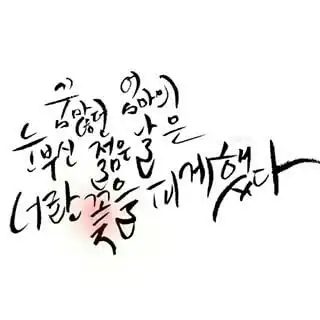 꿈많던 엄마의
눈부신 젊은날은
너란 꽃을 피게했다